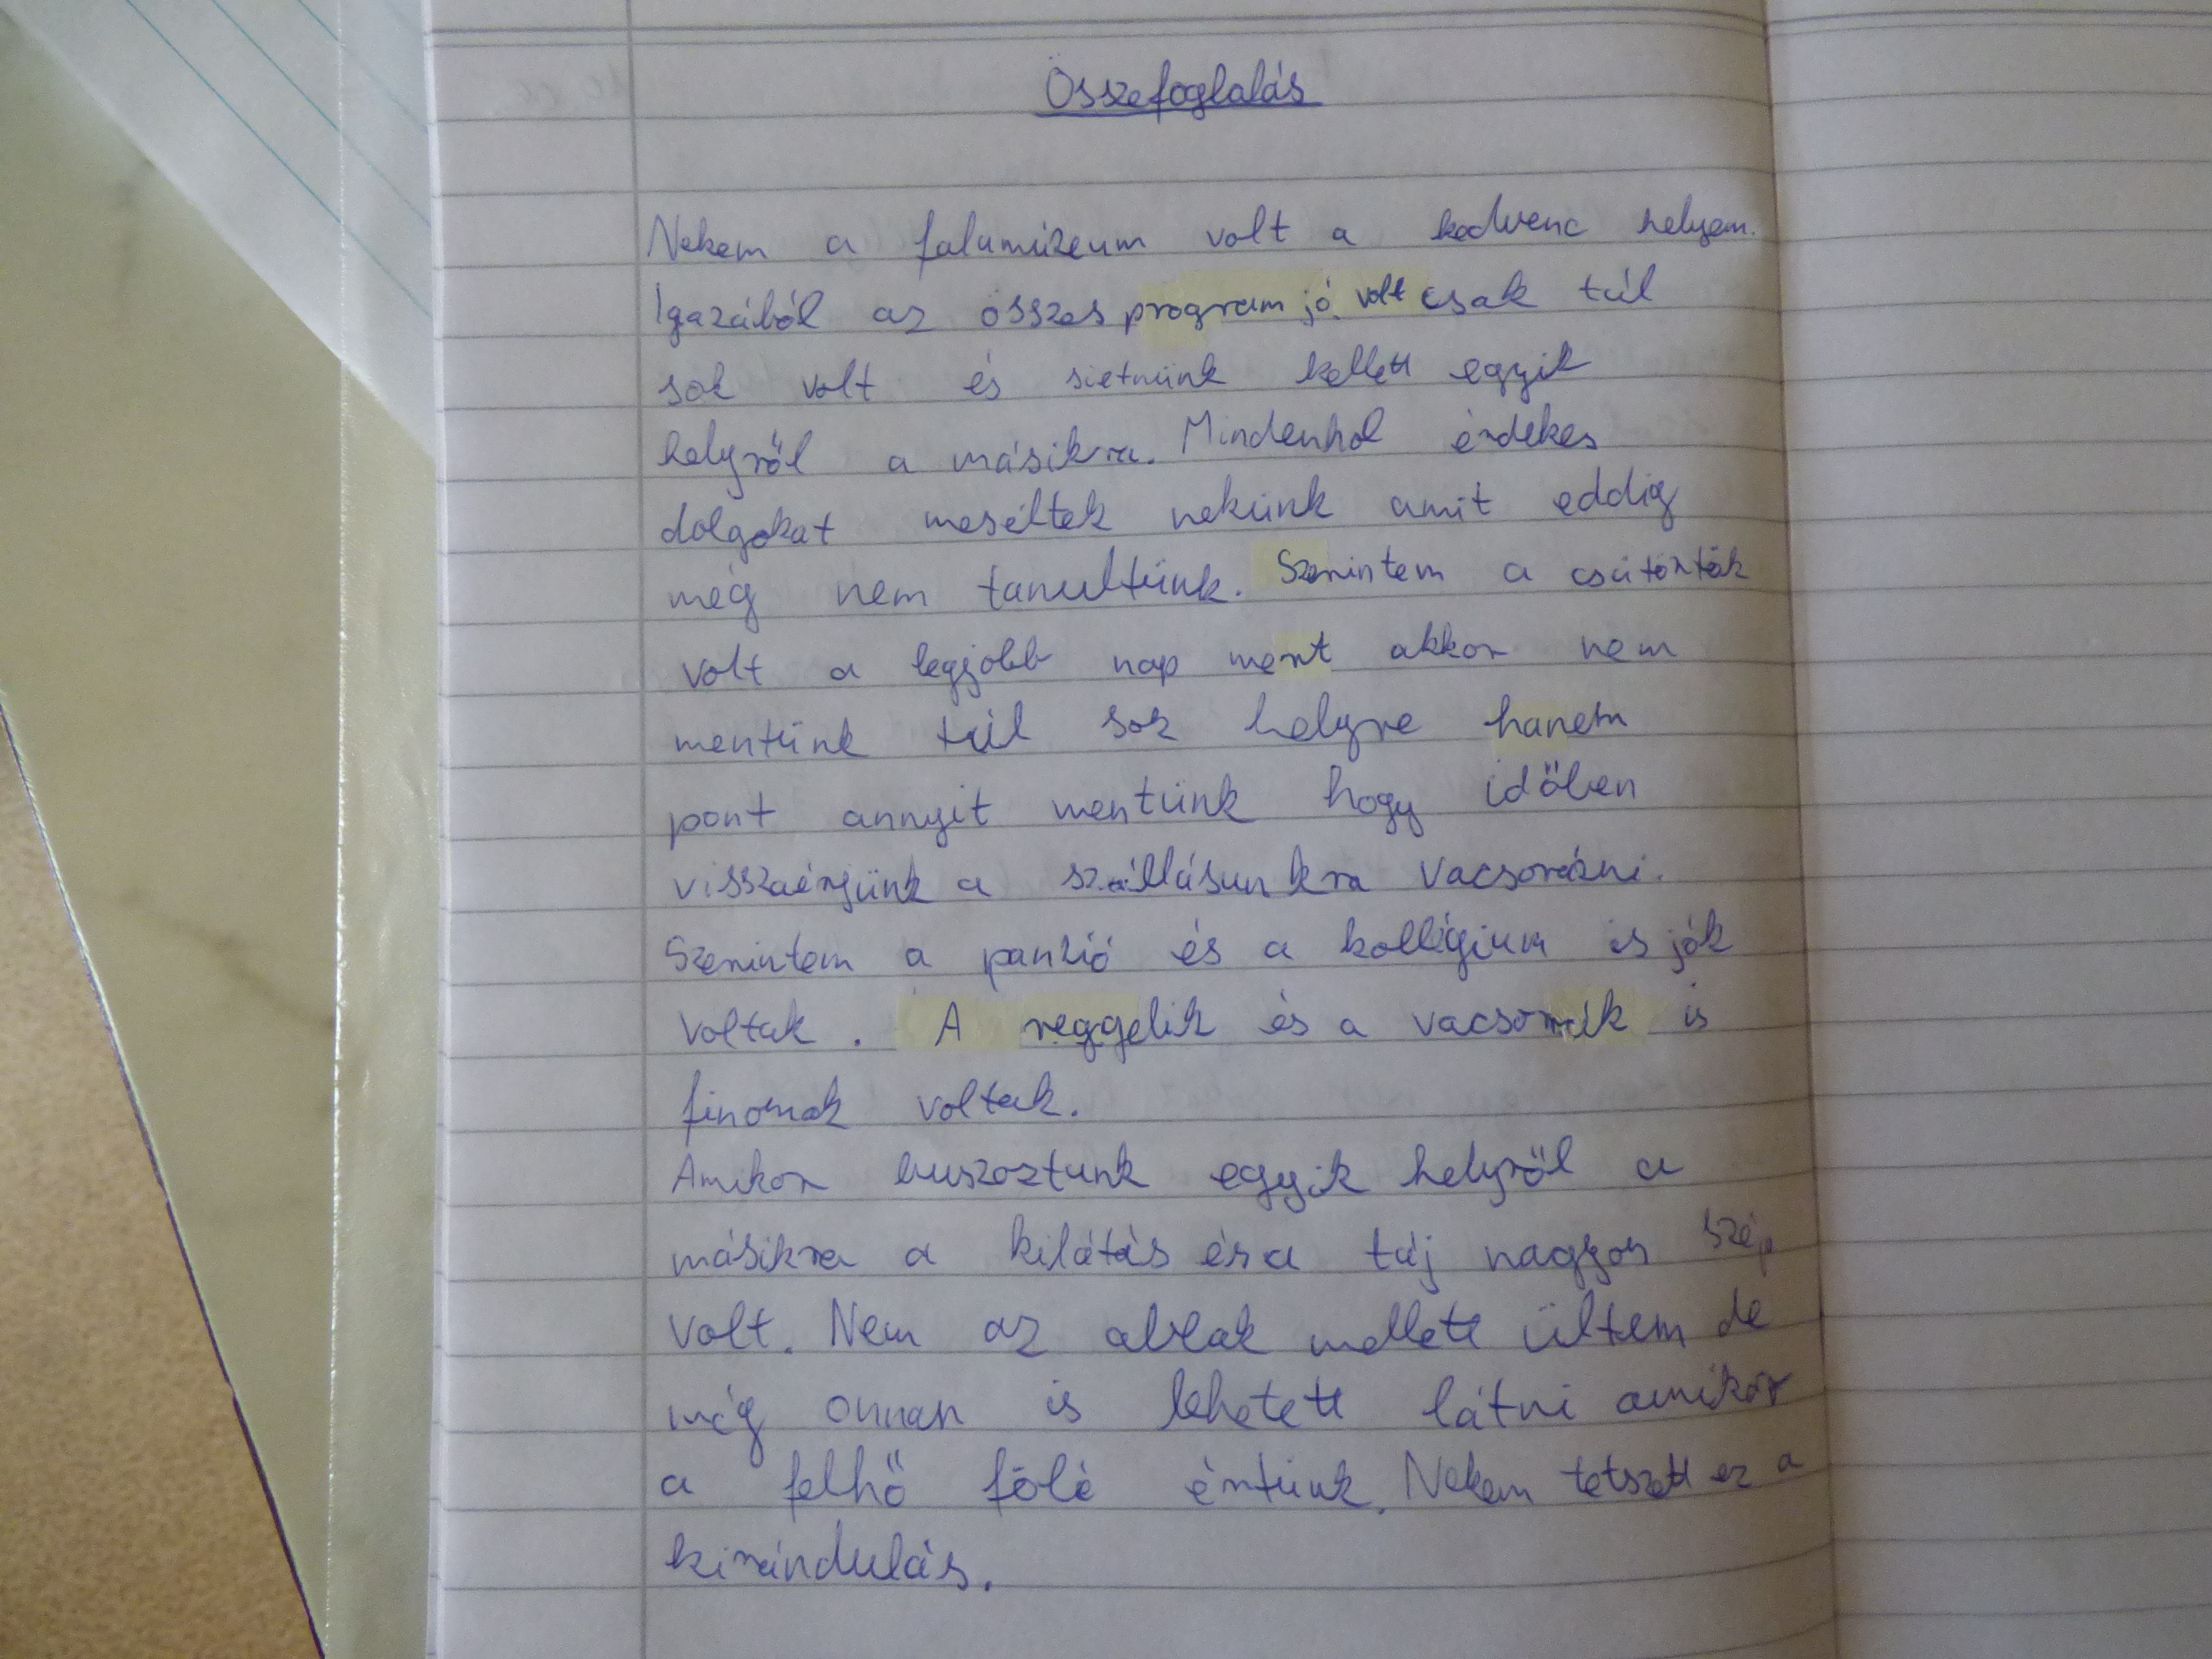 Összefoglalás
Nekem a falumúzeum volt a kedvenc helyem.
Igazából az összes program jó volt csak túl
sok volt és sietnünk kellett egyik
helyről a másikra. Mindenhol érdekes
dolgokat meséltek nekünk amit eddig
még nem tanultünk. Szerintem a csütörtök
volt a legjobb nap mert akkor nem
mentünk túl sok helyre hanem
pont annyit mentünk hogy időben
visszaérjünk a szállásunkra vacsorázni.
Szerintem a panzió és a kollégium is jók
voltak. A reggelik és a vacsorák is
finomak voltak.
Amikor buszoztunk egyik helyről a
másikra a kilátás és a táj nagyon szép
volt. Nem az ablak mellett ültem de
még onnan is lehetett látni amikor
a felhő fölé értünk. Nekem tetszett ez a
kirándulás.